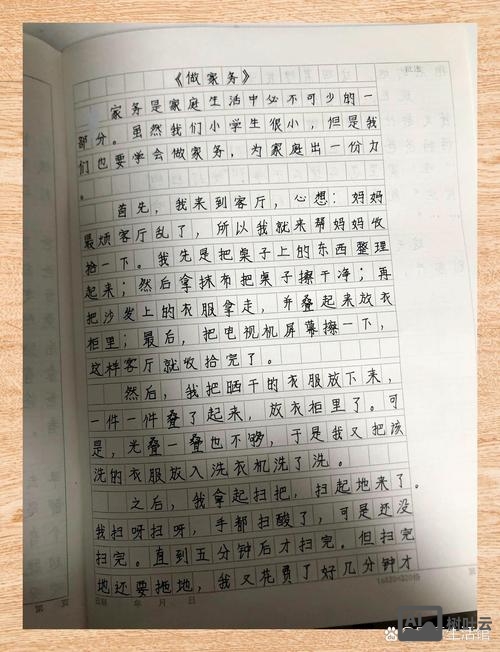 《做家务》
家务是家庭生活中必不可少的一
部分。虽然我们小学生很小，但是我
们也要学会做家务，为家庭出一份力
。
首先，我来到客厅，心想：妈妈
最烦客厅乱了，所以我就来帮妈妈收
拾一下。我先是把桌子上的东西整理
起来；然后拿抹布把桌子擦干净；再
把沙发上的衣服拿走，并叠起来放衣
柜里；最后，把电视机屏幕擦一下，
这样客厅就收拾完了。
然后，我把晒干的衣服放下来，
一件一件叠了起来，放衣柜里了。可
是，光叠一叠也不够，于是我又把该
洗的衣服放入洗衣机洗了洗。
之后，我拿起扫把，扫起地来了。
我扫呀扫呀，手都扫酸了，可是还没
扫完。直到五分钟后才扫完。但扫完
地还要拖地，我又花费了好几分钟才
年 月 日
树叶云
生活馆